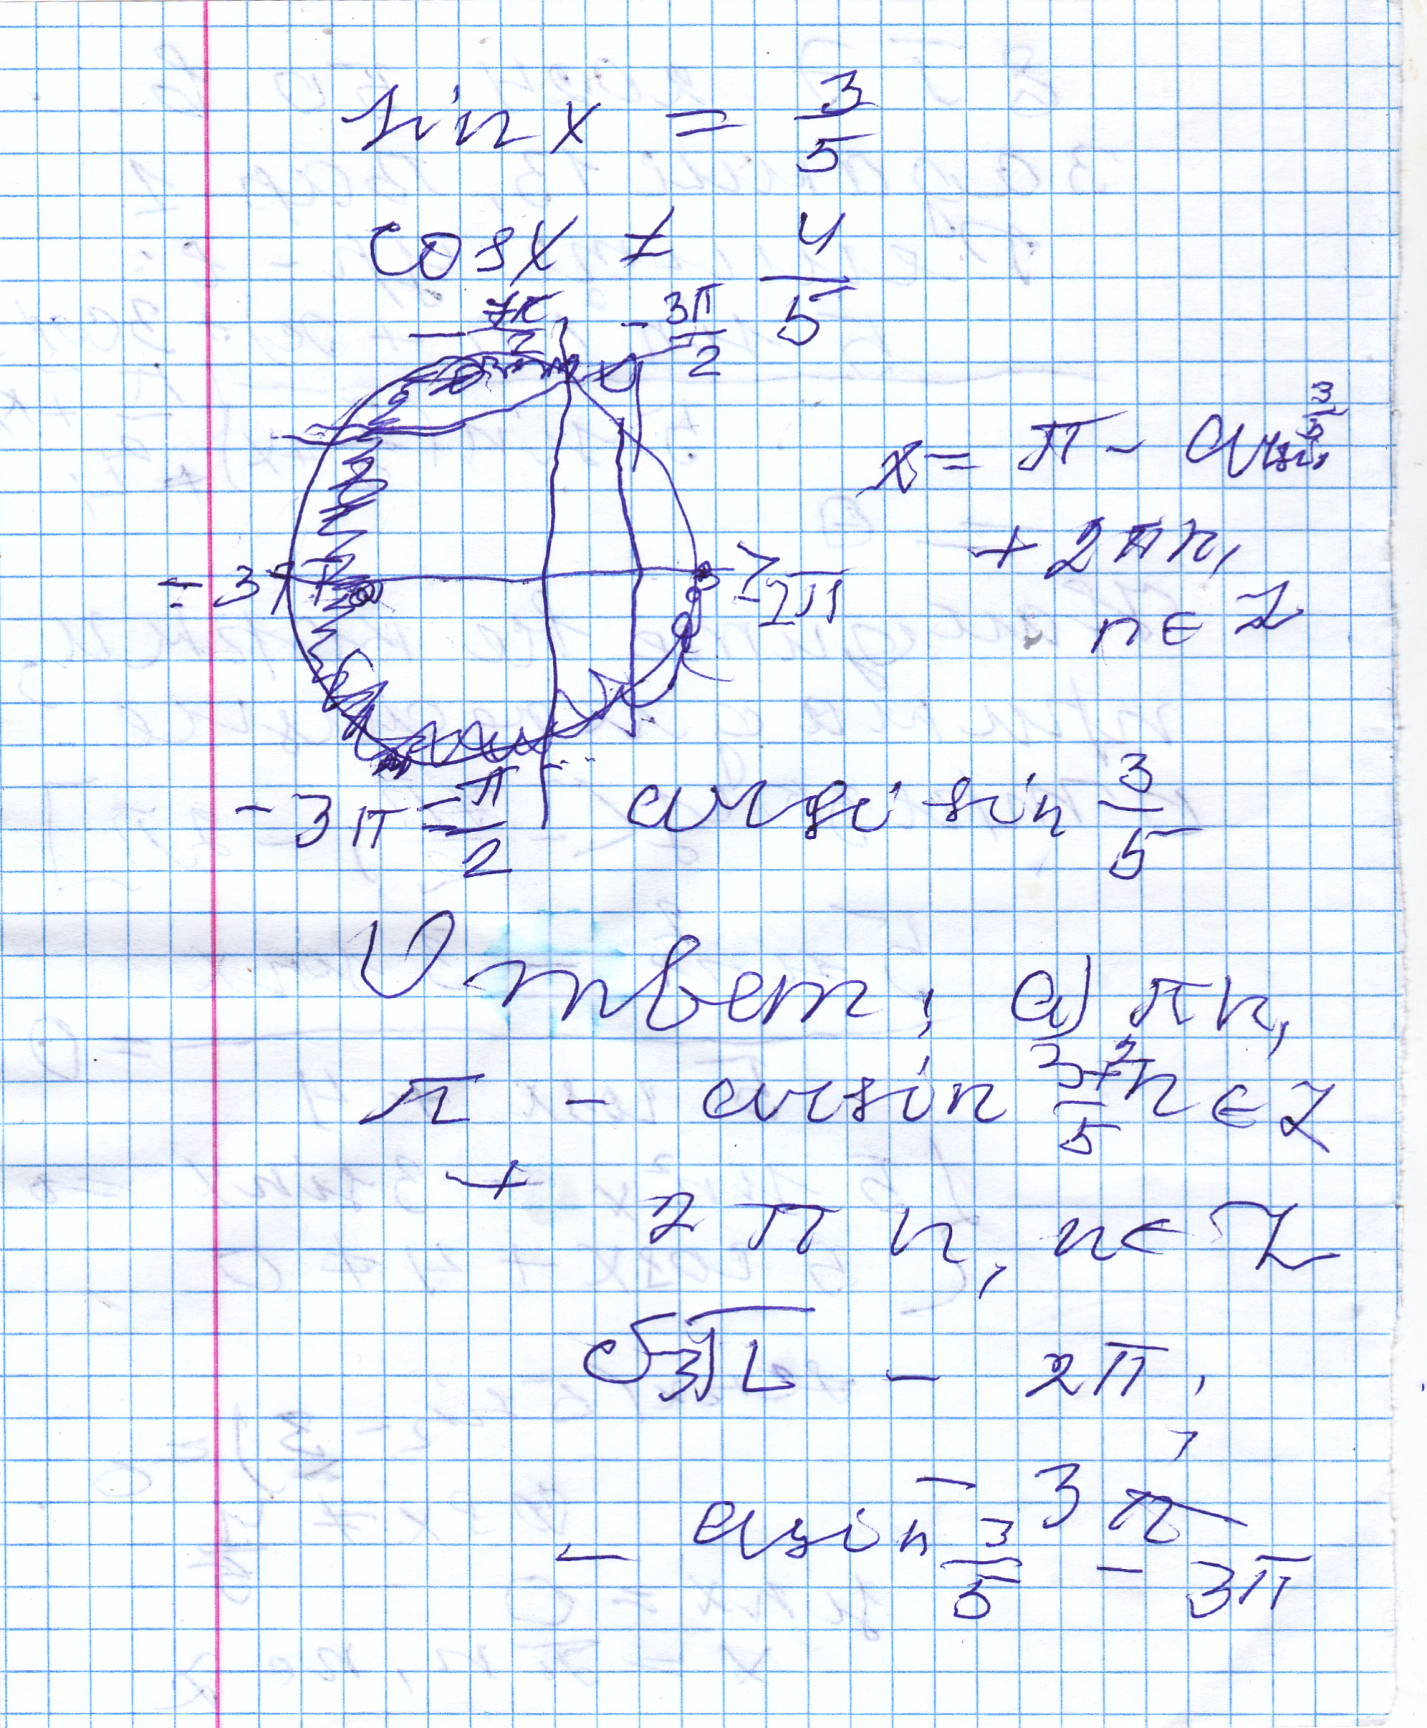 sin x = 3/5
cos x ≠ 4/5
- 7π/2
- 3π/2
x = π - arcsin 3/5
+ 2πn,
n ∈ Z
- 3π
- 2π
- 3π - π/2
arcsin 3/5
Ответ: а) πn,
n ∈ Z
π - arcsin 3/5
+ 2πn, n ∈ Z
б) -3π, - 2π,
- 3π
- arcsin 3/5 - 3π